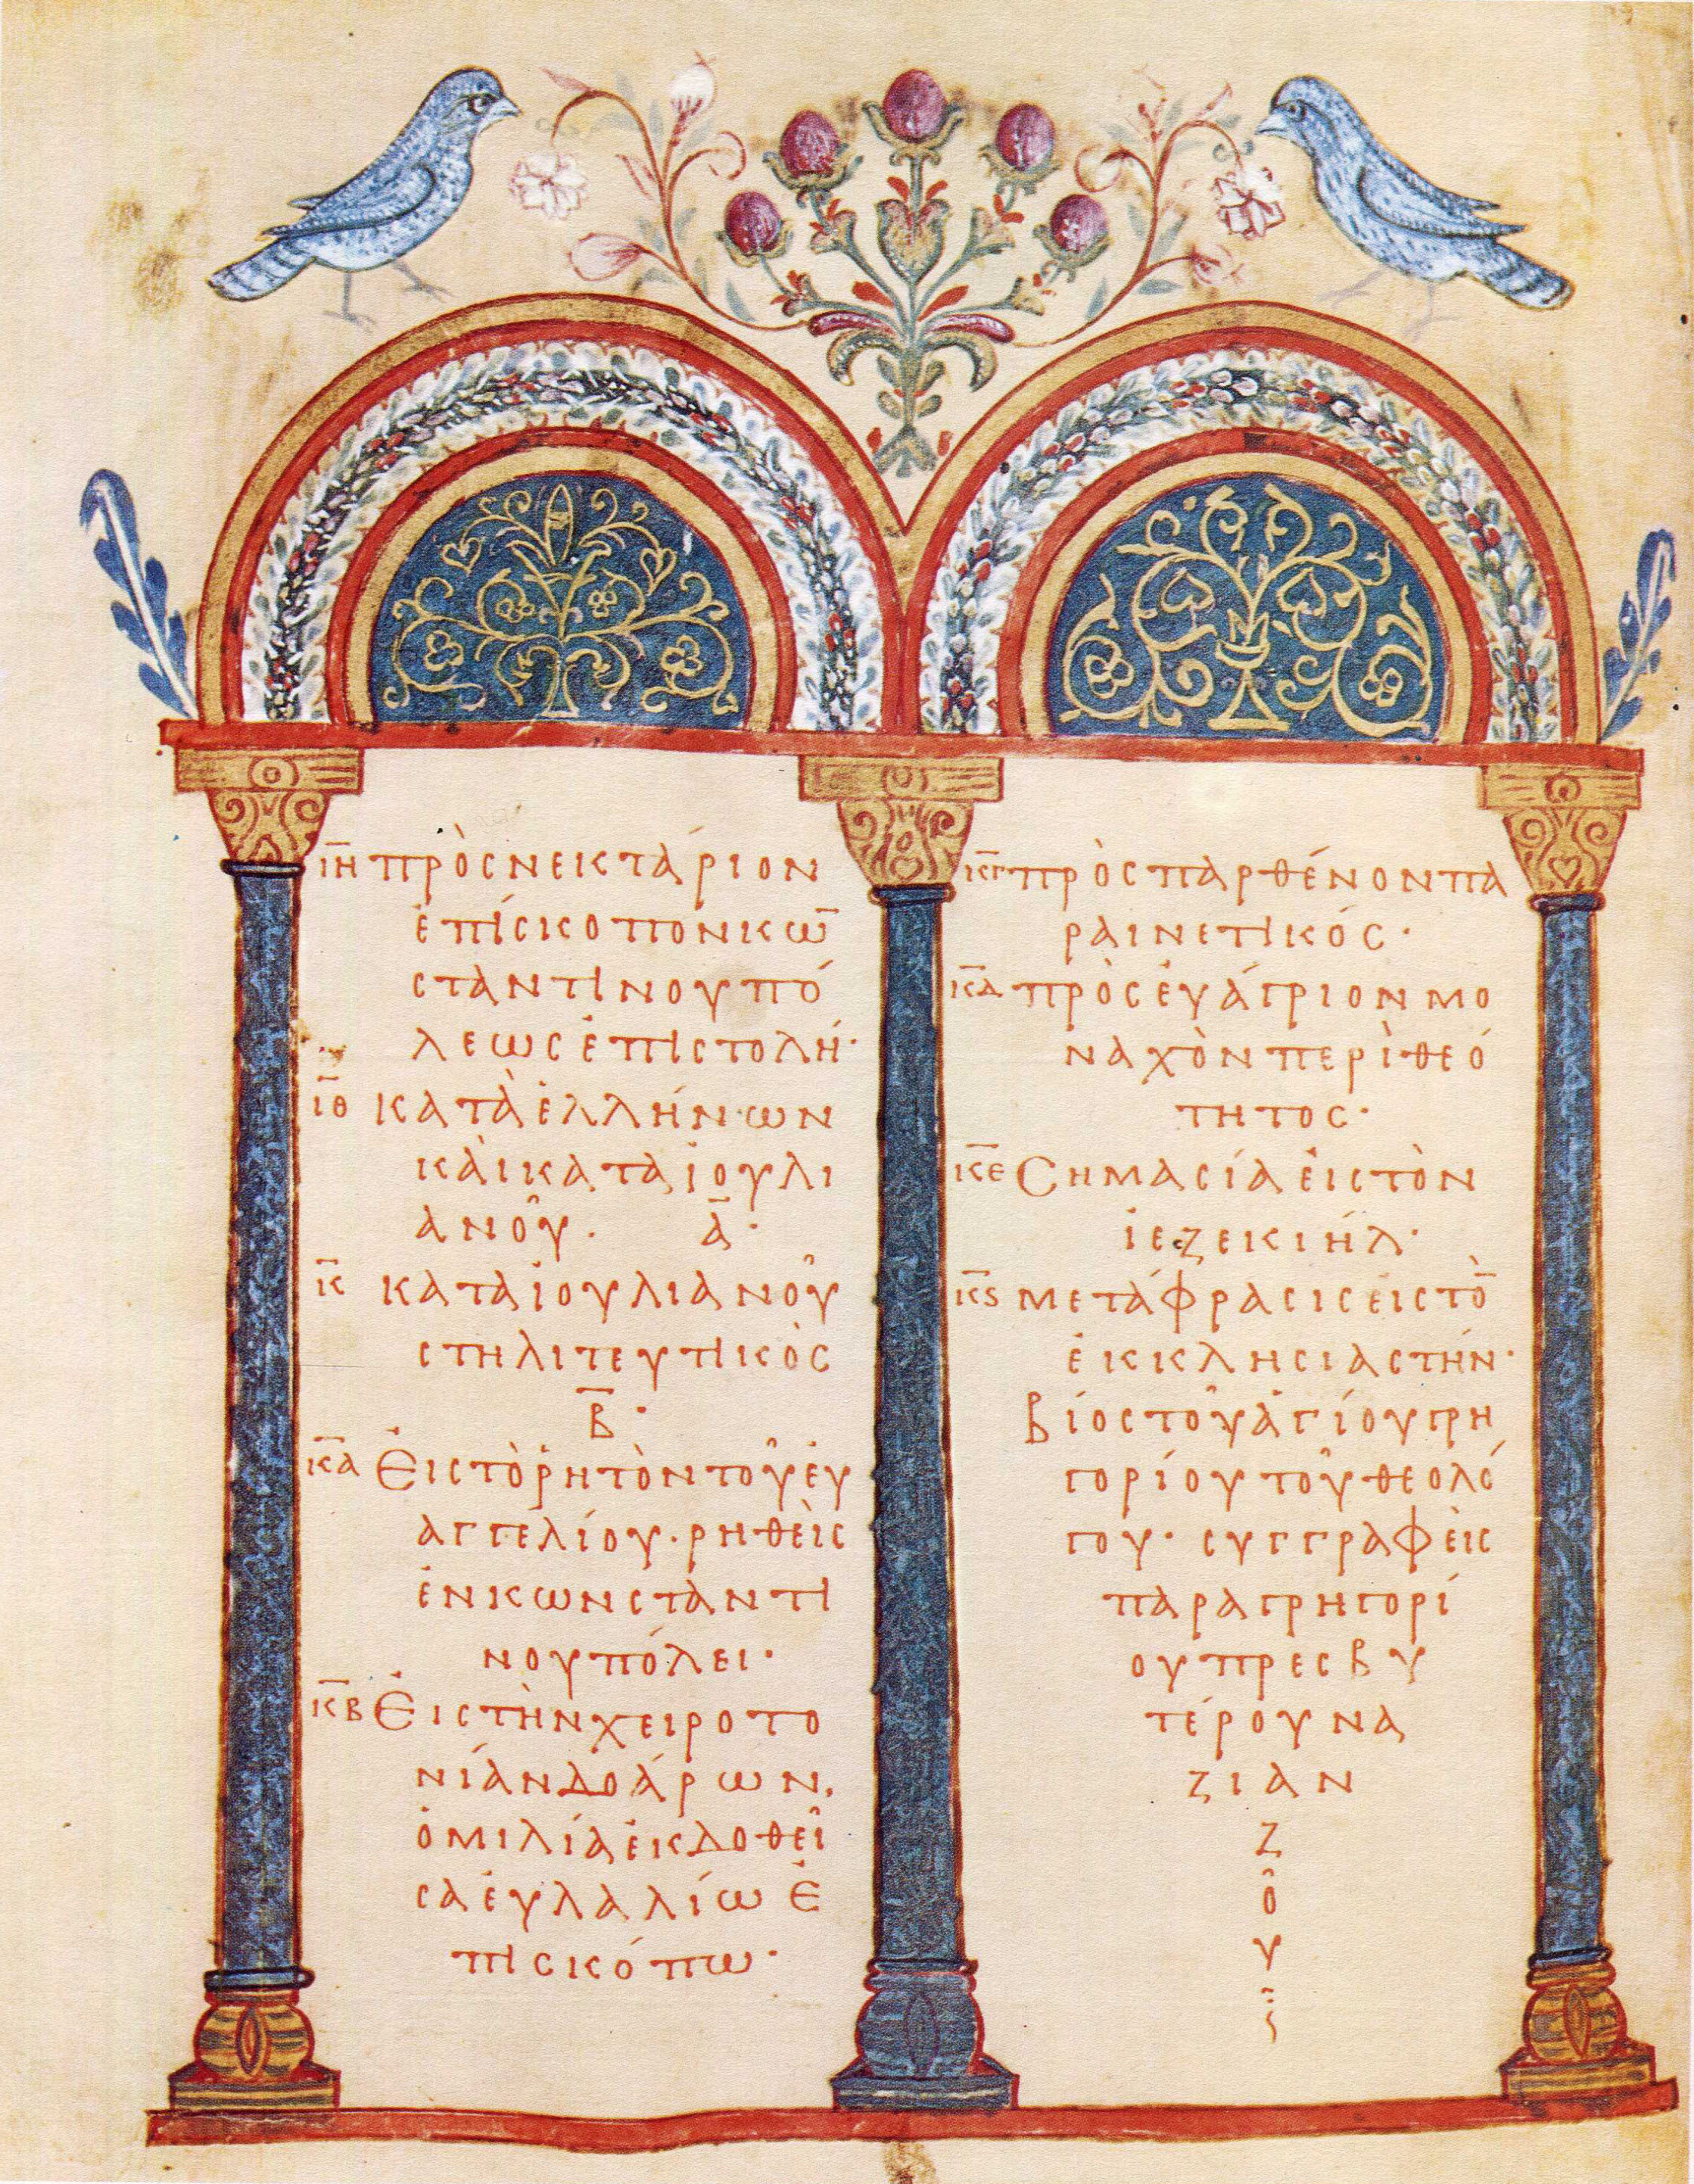 ι̅η̅ πρὸς νεκτάριον
ἐπίσκοπον κω̅
σταντινουπό
λεως ἐπιστολή·
ι̅θ κατὰ ἑλλήνων
κὰι κατα ἰουλι
ανοῦ. α̅·
κ̅ κατα ἰουλιανοῦ
στηλιτευτικὸς
β̅·
κ̅α Ἐις τὸ ῥητὸν τοῦ ἐυ
αγγελίου. ρηθὲις
ἐν κωνσταντι
νουπόλει·
κ̅β Ἐις τὴν χειροτο
νίαν δοάρων.
ὁμιλία ἐκδοθεῖ
σα ἐυλαλίω ἐ
πισκόπω·
κ̅γ πρὸς παρθένον πα
ραινετικός·
κ̅δ πρὸς ἐυάγριον μο
ναχὸν περὶ θεό
τητος·
κ̅ε Σημασία ἐις τὸν
ἰεζεκιήλ·
κ̅ς μετάφρασις ἐις τὸ̅
ἐκκλησιαστήν·
βίος τοῦ ἁγίου γρη
γορίου τοῦ θεολό
γου· συγγραφὲις
παρα γρηγορί
ου πρεσβυ
τέρου να
ζιαν
ζ
ο̂
υ